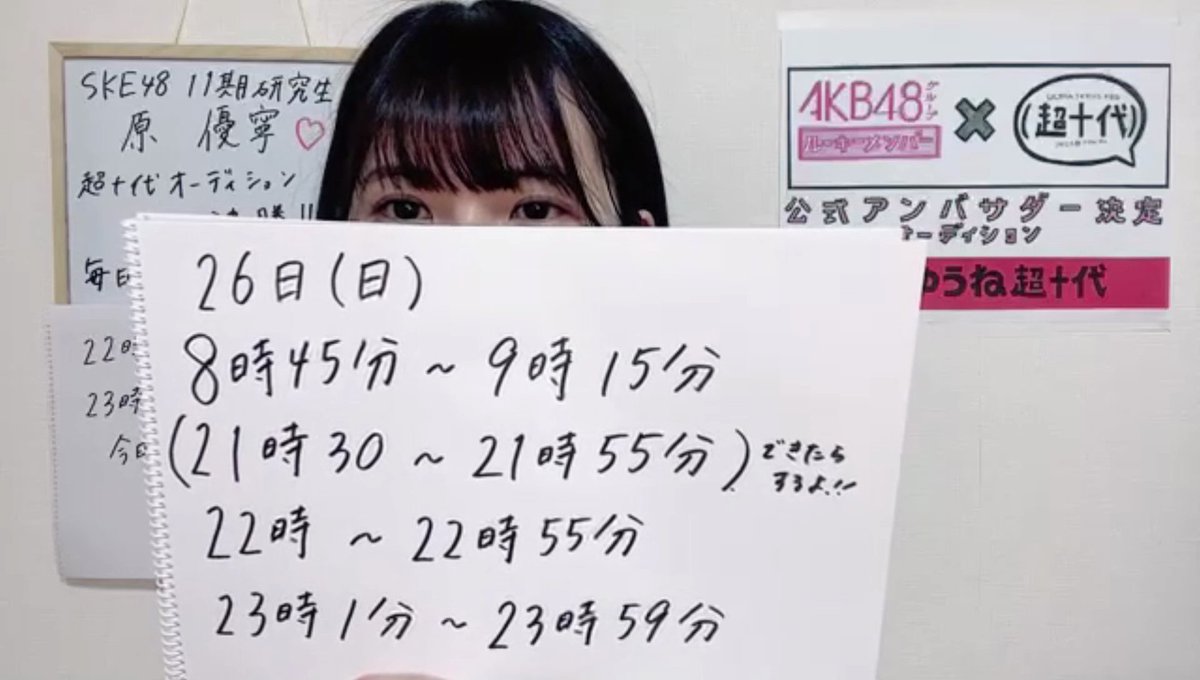 SKE48 11期研究生
原 優寧♡
超十代オーディション
毎日
22時
23時
今日
26日(日)
8時45分~9時15分
(21時30~21時55分)できたら
するよ!!
22時~22時55分
23時1分~23時59分
AKB48グループ
ルーキーメンバー
×
超十代
公式アンバサダー決定
オーディション
ゆうね超十代